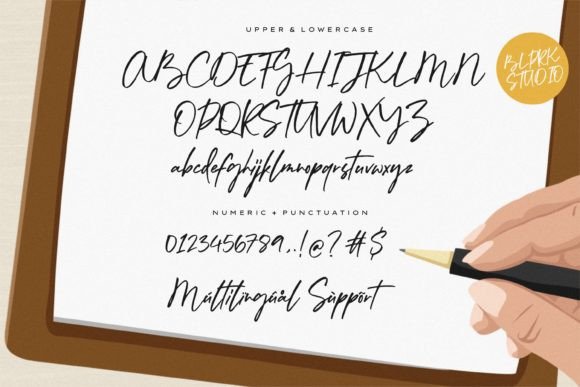 UPPER & LOWERCASE
ABCDEFGHIJKLMN
OPQRSTUVWXYZ
abcdefghijklmnopqrstuvwxyz
NUMERIC + PUNCTUATION
0123456789,.!@?#$
Múltilingüål Sùppõrt
BLPRK
STUDIO